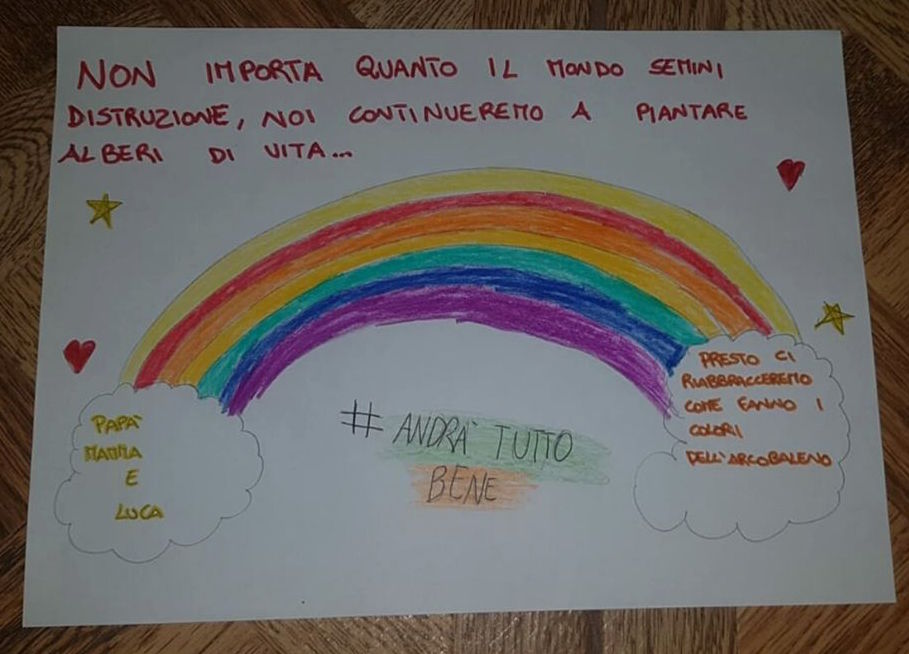 NON IMPORTA QUANTO IL MONDO SEMINI
DISTRUZIONE, NOI CONTINUEREMO A PIANTARE
ALBERI DI VITA...
PAPA'
MAMMA
E
LUCA
# ANDRA' TUTTO
BENE
PRESTO CI
RIABBRACCEREMO
COME FANNO I
COLORI
DELL'ARCOBALENO